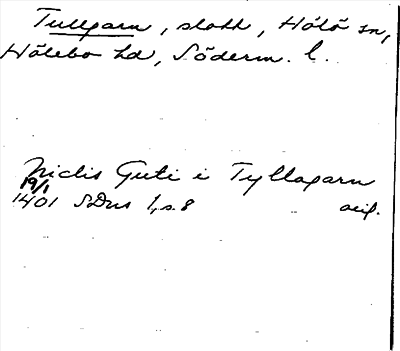 Tullgarn, slott, Hölö sn,
Hölebo hd, Söderm. l.
Niclis Guti i Tyllagarn
19/1
1401 SDns 1, s. 8 orig.